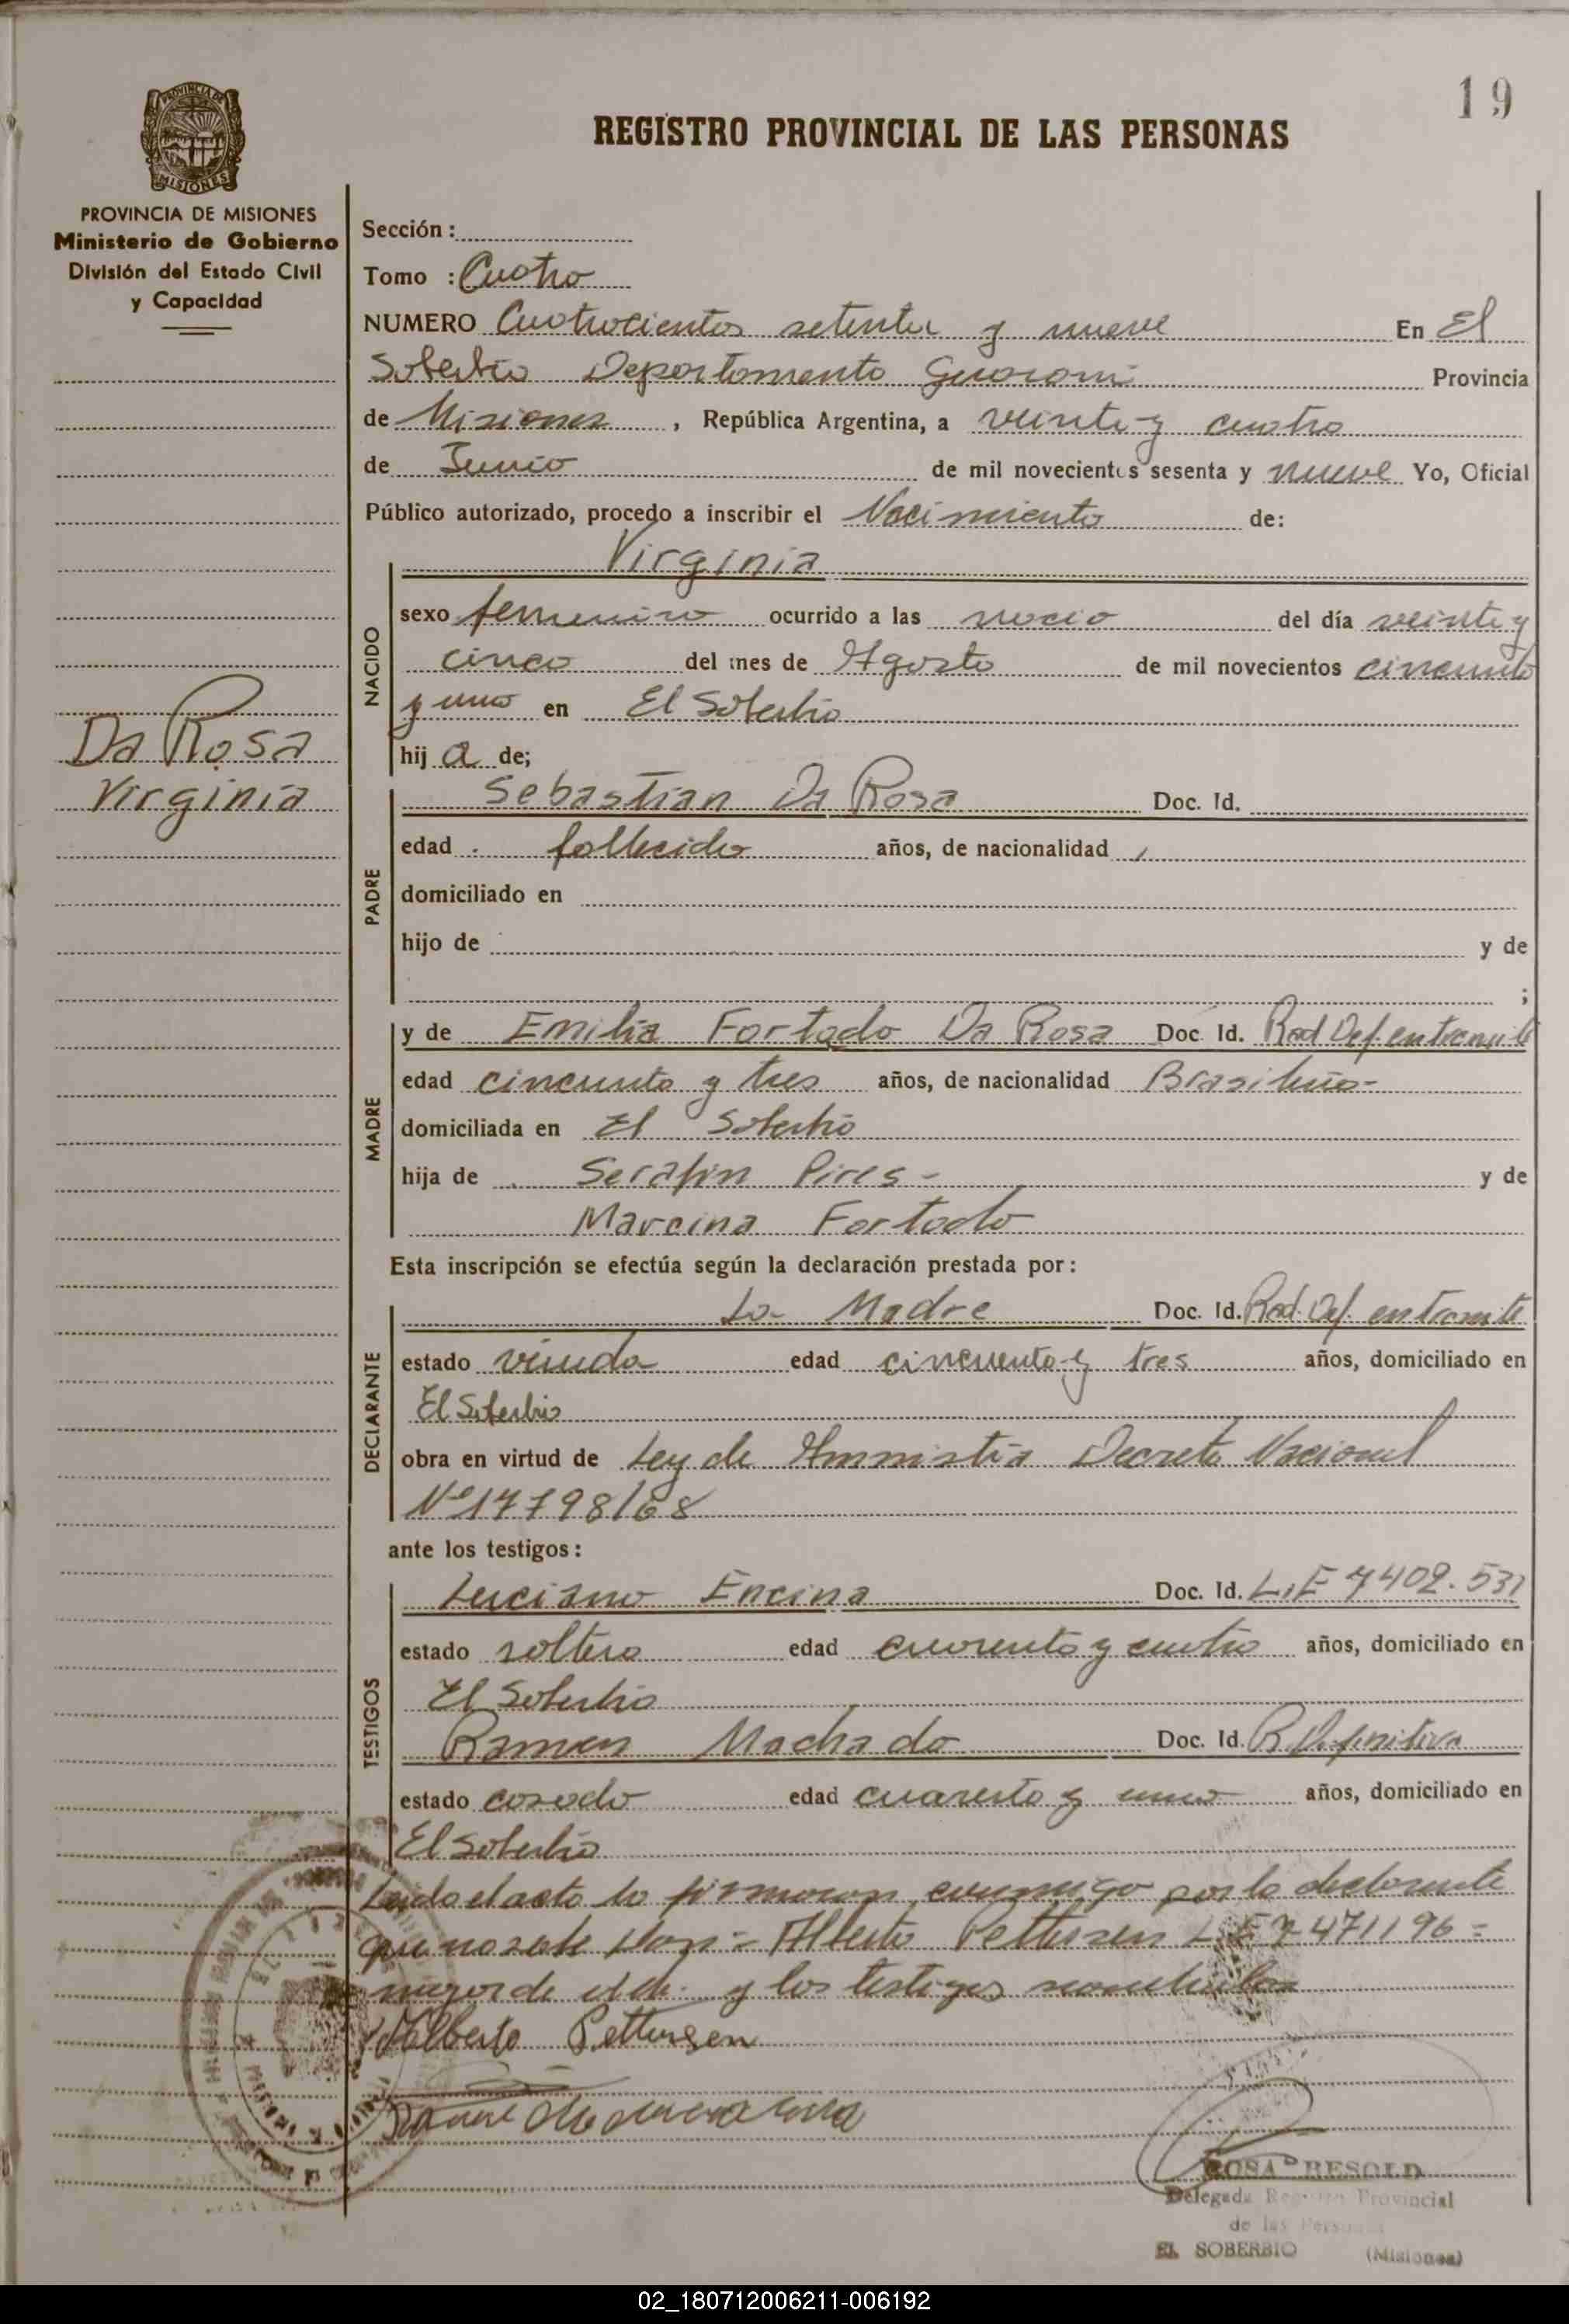 19
REGISTRO PROVINCIAL DE LAS PERSONAS
PROVINCIA DE
MISIONES
PROVINCIA DE MISIONES
Ministerio de Gobierno
División del Estado Civil
y Capacidad
Da Rosa
Virginia
Sección :
Tomo : Cuatro
NUMERO Cuatrocientos setenta y nueve En El
Soberbio Departamento Guarani Provincia
de Misiones , República Argentina, a veinte y cuatro
de Junio de mil novecientos sesenta y nueve Yo, Oficial
Público autorizado, procedo a inscribir el Nacimiento de:
NACIDO
Virginia
sexo femenino ocurrido a las del día veinte y
cinco del mes de Agosto de mil novecientos cincuenta
y uno en El Soberbio
hij a de;
PADRE
Sebastian Da Rosa Doc. Id.
edad fallecido años, de nacionalidad
domiciliado en
hijo de y de
;
MADRE
y de Emilia Fortado Da Rosa Doc. Id. Rad Def. en tramite
edad cincuenta y tres años, de nacionalidad Brasileña-
domiciliada en El Soberbio
hija de Serafin Pires - y de
Marcina Fortado
Esta inscripción se efectúa según la declaración prestada por :
DECLARANTE
La Madre Doc. Id. Rad. Def. en tramite
estado viuda edad cincuenta y tres años, domiciliado en
El Soberbio
obra en virtud de Ley de Amnistia Decreto Nacional
Nº 17798/68
ante los testigos :
TESTIGOS
Luciano Encina Doc. Id. L.E 7402.531
estado soltero edad cuarenta y cuatro años, domiciliado en
El Soberbio
Ramon Machado Doc. Id. R. Definitiva
estado casado edad cuarenta y uno años, domiciliado en
El Soberbio
Leido el acta la firmaron conmigo por la declarante
que no sabe Alberto Pettersen L.E 7471196 =
mayor de edad y los testigos nombrados
Alberto Pettersen
ROSA RESOLD
Delegada Registro Provincial
de las Personas
EL SOBERBIO (Misiones)
02_180712006211-006192